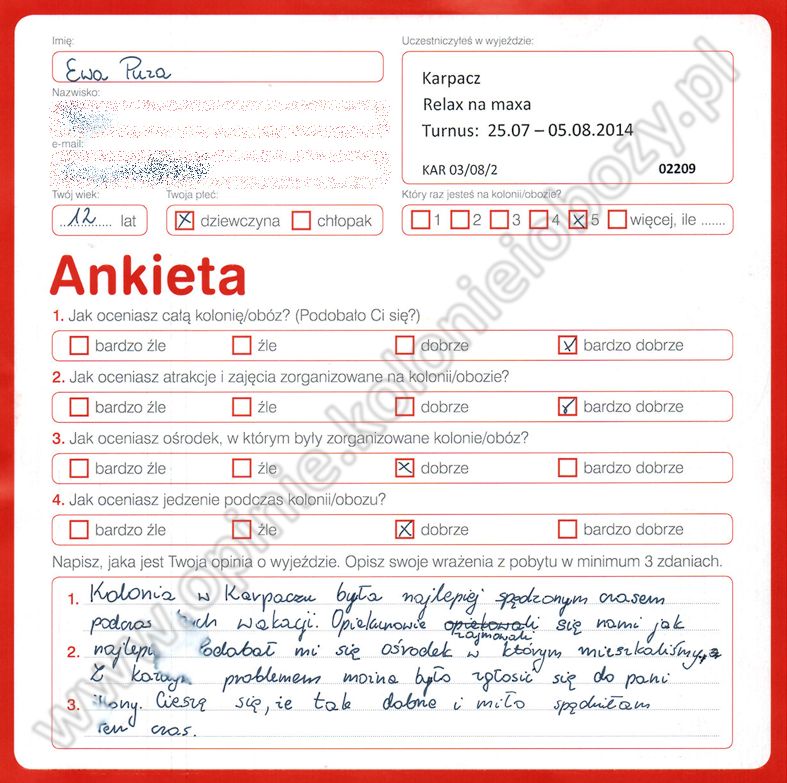 Imię:
Uczestniczyłeś w wyjeździe:
Ewa Puza
Karpacz
Nazwisko:
Relax na maxa
Turnus: 25.07 – 05.08.2014
e-mail:
KAR 03/08/2 02209
Twój wiek: Twoja płeć: Który raz jesteś na kolonii/obozie?
12 lat dziewczyna chłopak 1 2 3 4 5 więcej, ile .......
Ankieta
1. Jak oceniasz całą kolonię/obóz? (Podobało Ci się?)
bardzo źle źle dobrze bardzo dobrze
2. Jak oceniasz atrakcje i zajęcia zorganizowane na kolonii/obozie?
bardzo źle źle dobrze bardzo dobrze
3. Jak oceniasz ośrodek, w którym były zorganizowane kolonie/obóz?
bardzo źle źle dobrze bardzo dobrze
4. Jak oceniasz jedzenie podczas kolonii/obozu?
bardzo źle źle dobrze bardzo dobrze
Napisz, jaka jest Twoja opinia o wyjeździe. Opisz swoje wrażenia z pobytu w minimum 3 zdaniach.
1. Kolonia w Karpaczu była najlepiej spędzonym czasem
podczas wakacji. Opiekunowie opiekowali się nami jak
zajmowali
2. podobał mi się ośrodek w którym mieszkaliśmy.
Z każdym problemem można było zgłosić się do pani
3. Cieszę się, że tak dobrze i miło spędziłam
ten czas.
www.opinie.kolonieiobozy.pl